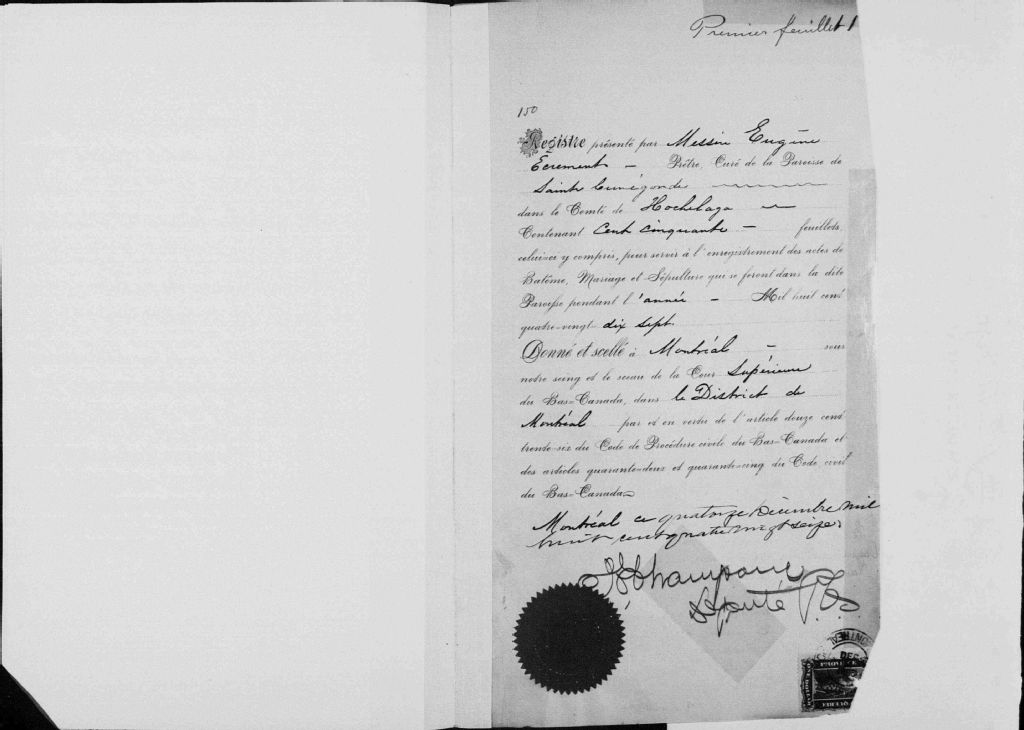 Premier feuillet 1
150
Registre présenté par Messire Eugène
Ecrement — Prêtre, Curé de la Paroisse de
Sainte Cunégonde
dans le Comté de Hochelaga —
Contenant Cent cinquante — feuillets,
celui-ci y compris, pour servir à l'enregistrement des actes de
Batême, Mariage et Sépulture qui se feront dans la dite
Paroisse pendant l'année — Mil huit cent
quatre-vingt dix sept.
Donné et scellé à Montréal — sous
notre seing et le sceau de la Cour Supérieure
du Bas-Canada, dans le District de
Montréal par et en vertu de l'article douze cent
trente-six du Code de Procédure civile du Bas-Canada et
des articles quarante-deux et quarante-cinq du Code civil
du Bas-Canada
Montréal ce quatorze Décembre mil
huit cent quatre vingt seize.
Champagne
Député P.C.S.
DEC